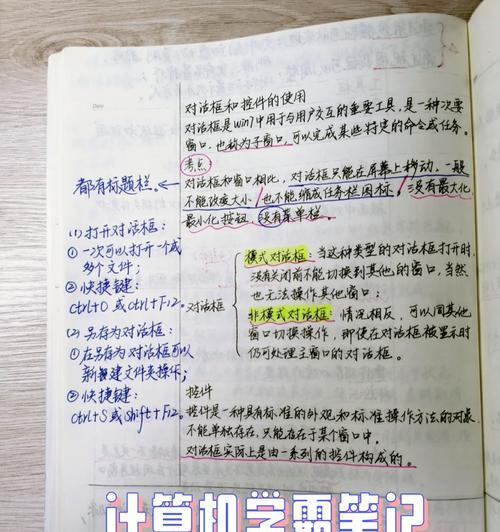 Date
对话框和控件的使用
对话框是Win7中用于与用户交互的重要工具,是一种次要
窗口.也称为子窗口,可以完成某些特定的命令或任务。
考点
对话框和窗口相比,对话框只能在屏幕上移动,一般
不能改变大小,也不能缩成任务栏图标,没有最大化
最小化按钮,没有菜单栏.
都有标题栏.
(1)打开对话框:
①一次可以打开一个或
多个文件;
②快捷键:
ctrl+O 或ctrl+F12.
(2)另存为对话框:
①在另存为对话框可以
新建文件夹操作;
②快捷键:
ctrl+S或Shift+F12.
对话框
模式对话框:当这种类型的对话框打开时,
没有关闭前不能切换到其他的窗口,当然
也无法操作其他窗口;
非模式对话框:情况相反,可以同其他
窗口切换操作,即使在对话框被显示时
仍可处理主窗口的对话框。
控件
控件是一种具有标准的外观和标准操作方法的对象.
不能单独存在,只能存在于某个窗口中.
对话框实际上是由一系列的控件构成的。
计算机学霸笔记